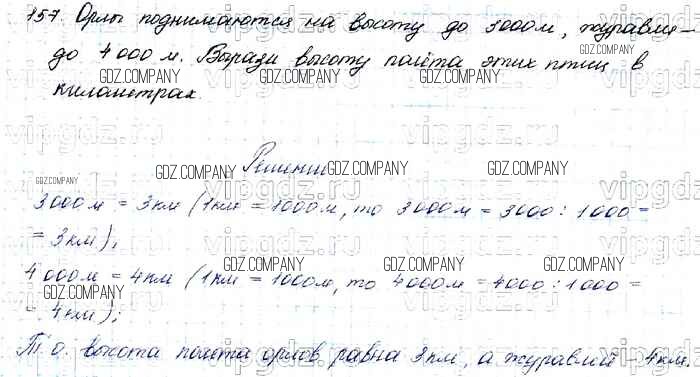 157. Орлы поднимаются на высоту до 3000 м, журавли –
до 4 000 м. Вырази высоту полёта этих птиц в
километрах.
Решение
3000м = 3км (1км = 1000м, то 3000м = 3000 : 1000 =
= 3км);
4 000м = 4км (1км = 1000м, то 4000м = 4000 : 1000 =
= 4км);
Т. о. высота полёта орлов равна 3км, а журавлей – 4км.
GDZ.COMPANY
vipgdz.ru